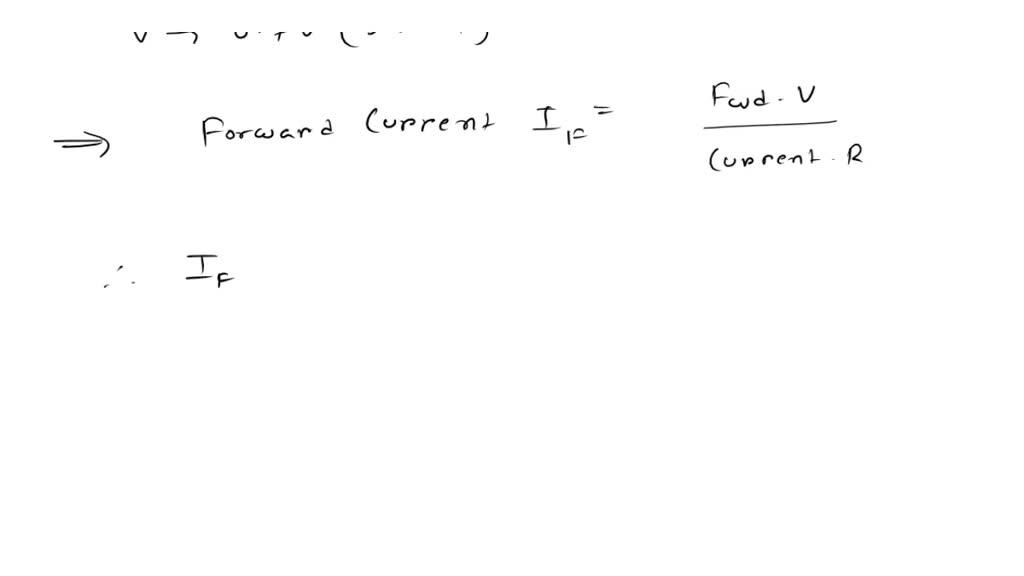 ⇒ Forward Current I_F = Fwd. V / Current. R
∴ I_F